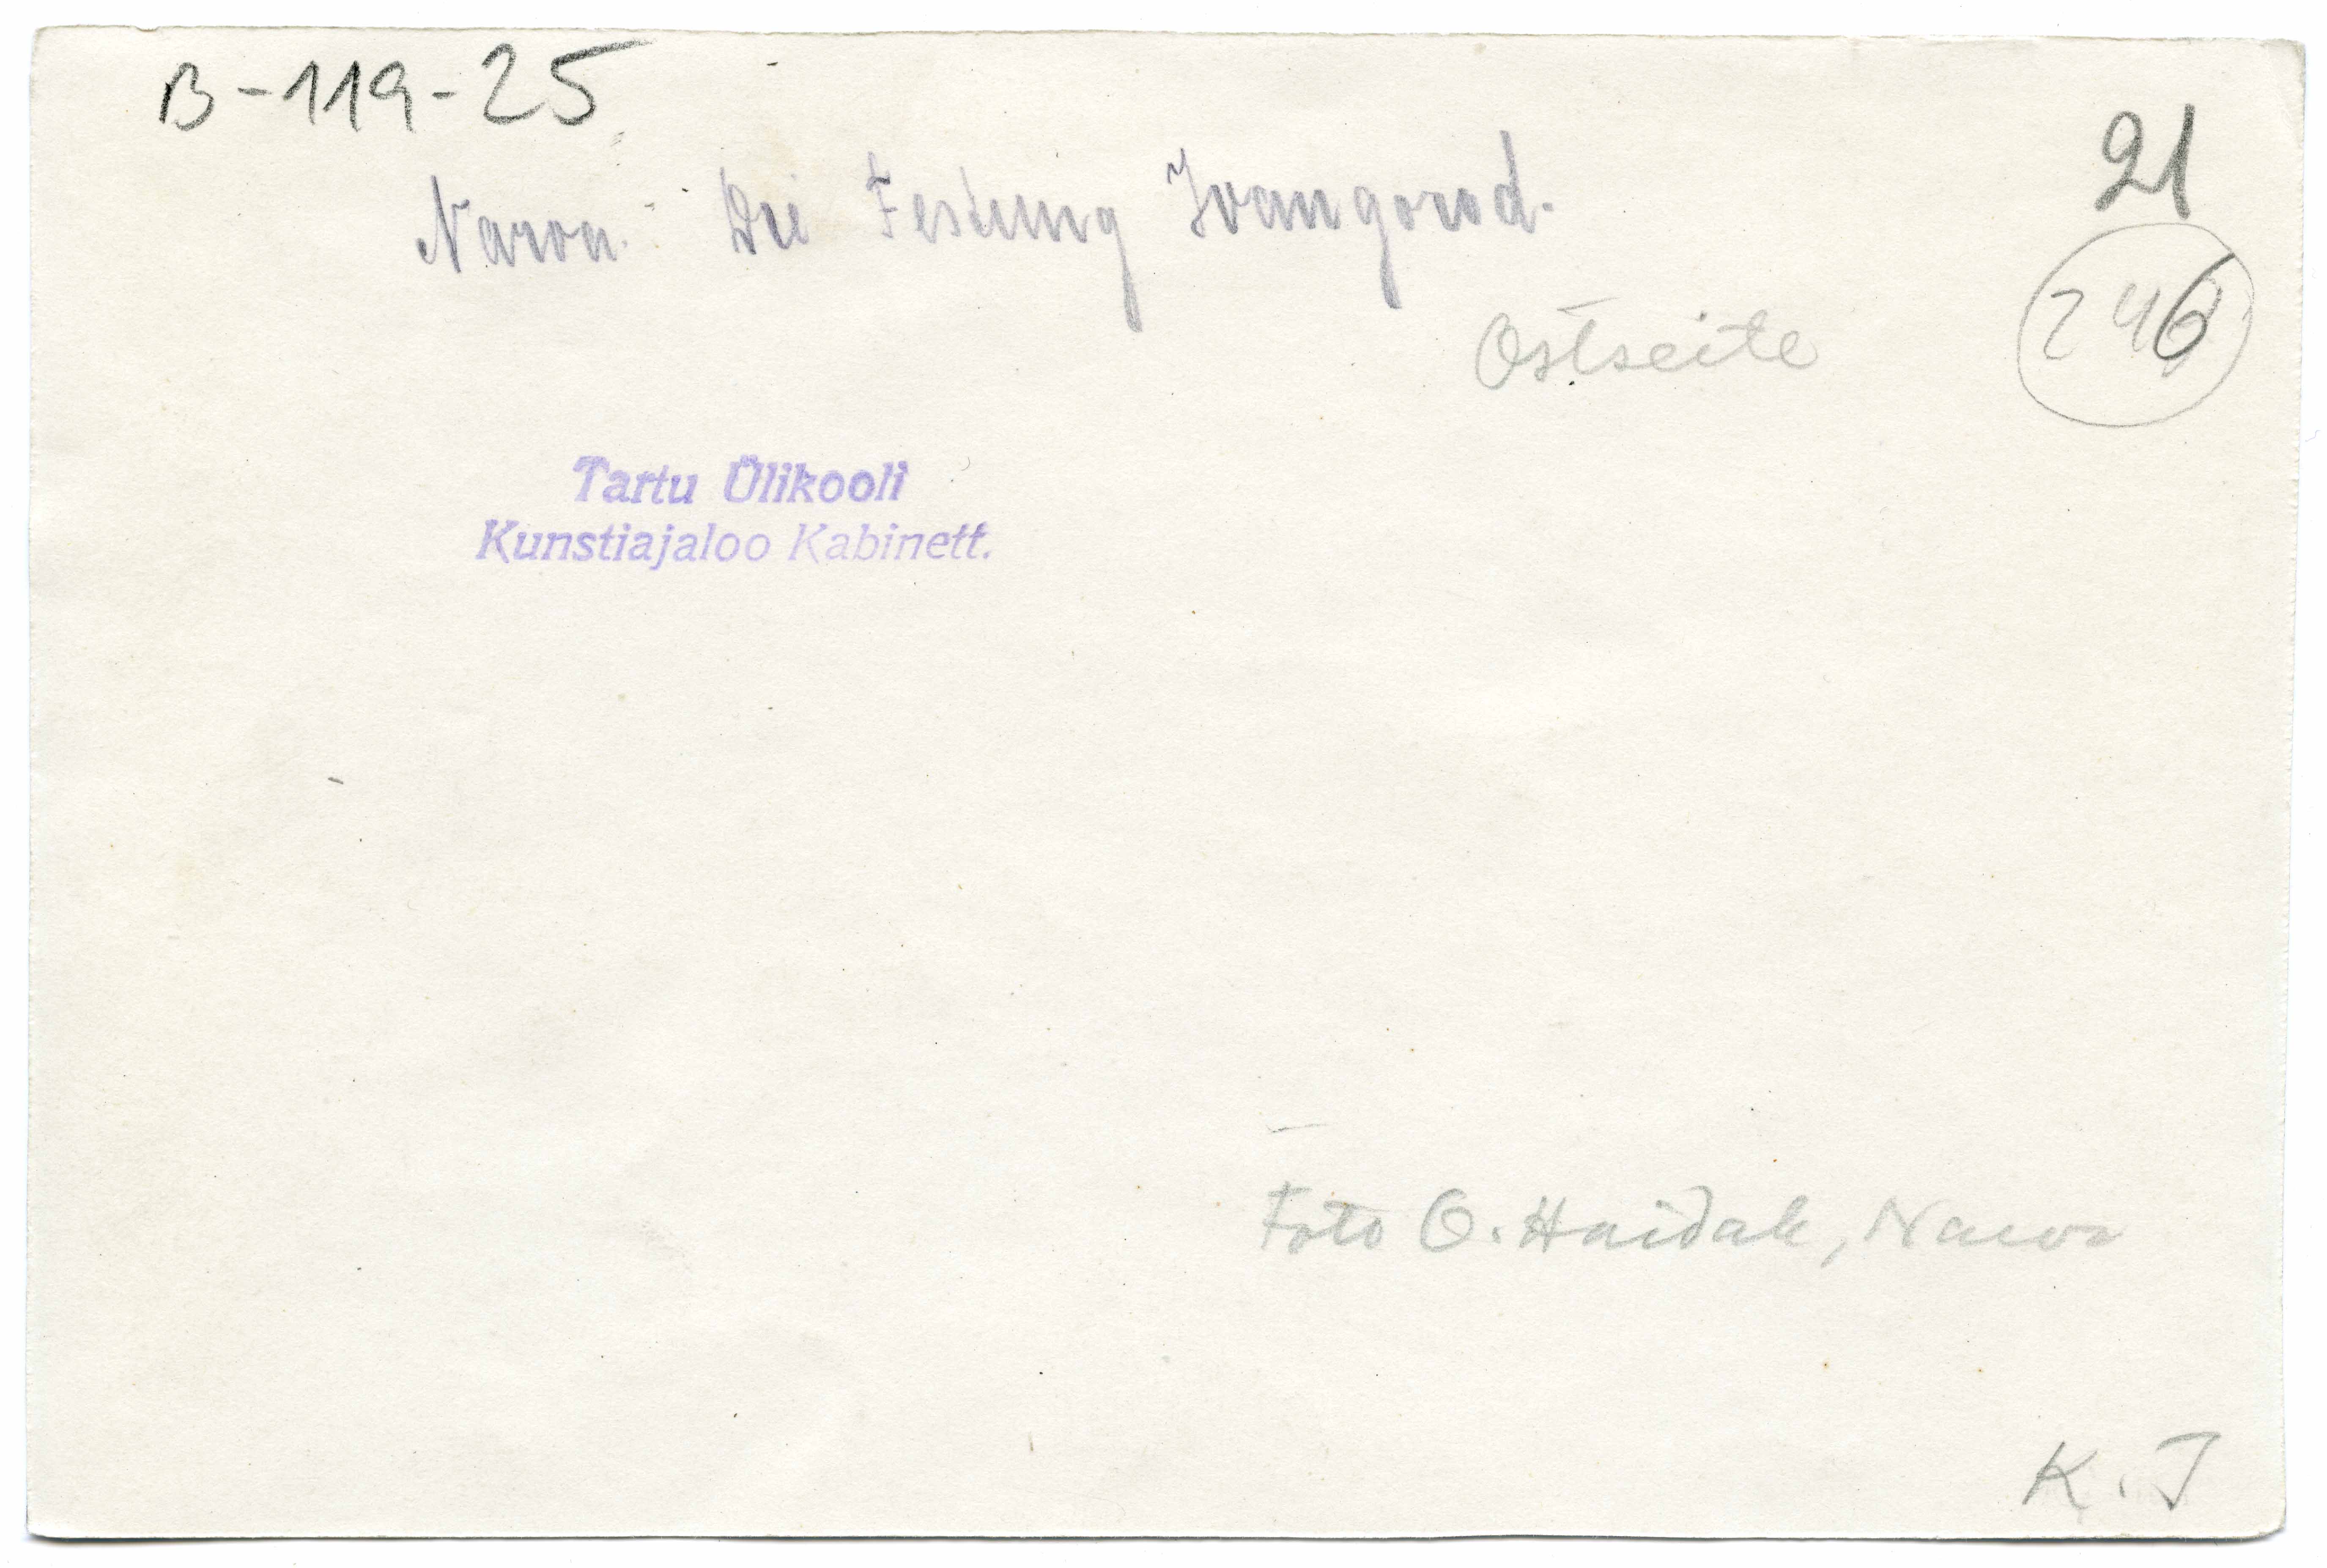 B-119-25
21
Narva. Die Festung Ivangorod.
246
Ostseite
Tartu Ülikooli
Kunstiajaloo Kabinett.
Foto O. Haidak, Narva
K. J